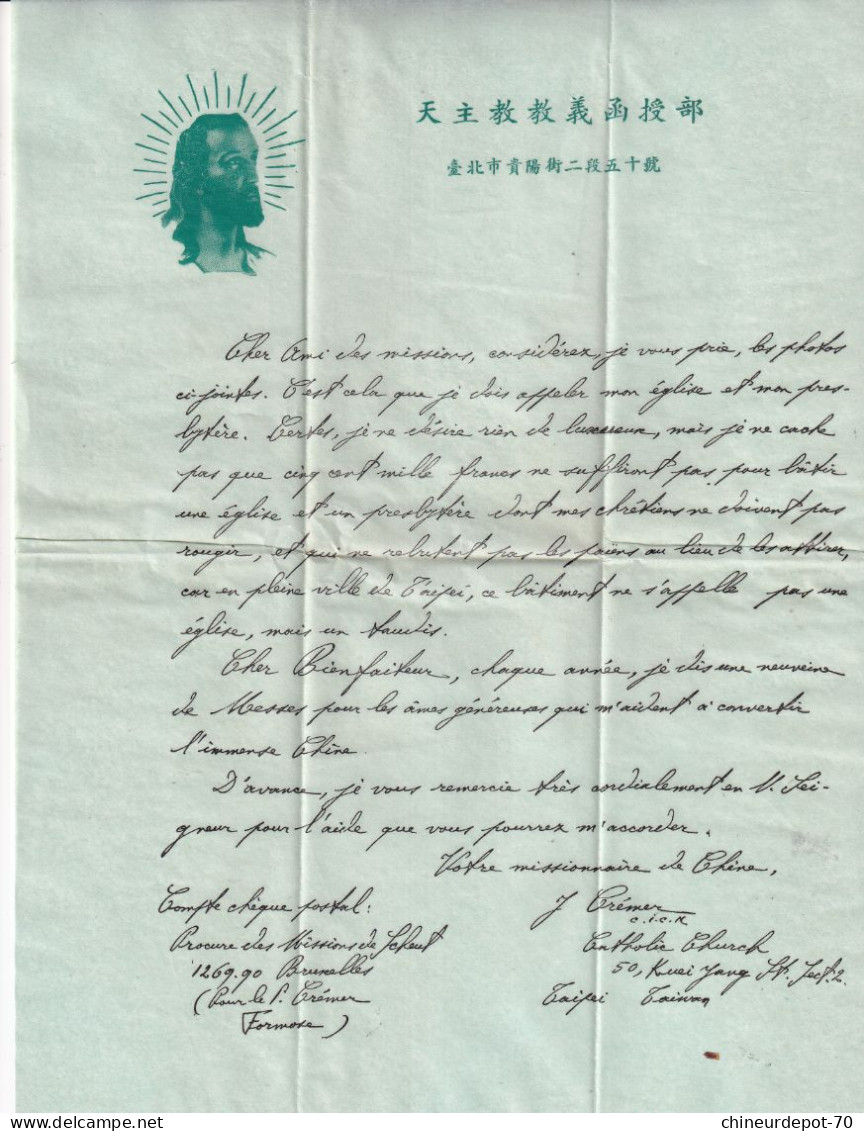 天主教教義函授部
臺北市貴陽街二段五十號
Cher Ami des missions, considérez, je vous prie, les photos
ci-jointes. C'est cela que je dois appeler mon église et mon pres-
bytère. Certes, je ne désire rien de luxueux, mais je ne cache
pas que cinq cent mille francs ne suffiront pas pour bâtir
une église et un presbytère dont mes chrétiens ne doivent pas
rougir, et qui ne rebutent pas les païens au lieu de les attirer,
car en pleine ville de Taipei, ce bâtiment ne s'appelle pas une
église, mais un taudis.
Cher Bienfaiteur, chaque année, je dis une neuvaine
de Messes pour les âmes généreuses qui m'aident à convertir
l'immense Chine.
D'avance, je vous remercie très cordialement en N. Sei-
gneur pour l'aide que vous pourrez m'accorder.
Votre missionnaire de Chine,
J Crémer
c.i.c.m
Catholic Church
50, Kuei Yang St. Sect. 2.
Taipei Taiwan
Compte chèque postal:
Procure des Missions de Scheut
1269.90 Bruxelles
(Pour le P. Crémer
Formose)
chineurdepot-70